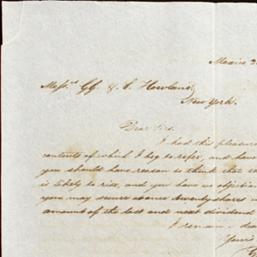 Mexico 2
Messrs. G. G. & S. Howland,
New York.
Dear Sirs,
I had this pleasure
contents of which I beg to refer, and have
you should have reason to think that
is likely to rise, and you have no objection
you may secure above twenty shares
amount of the last and next dividend
I remain, dear
Yours